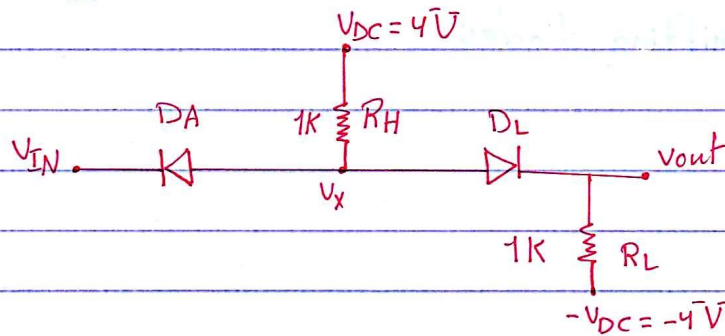 VDC = 4V
DA
1K
RH
DL
VIN
Vx
Vout
1K
RL
-VDC = -4V